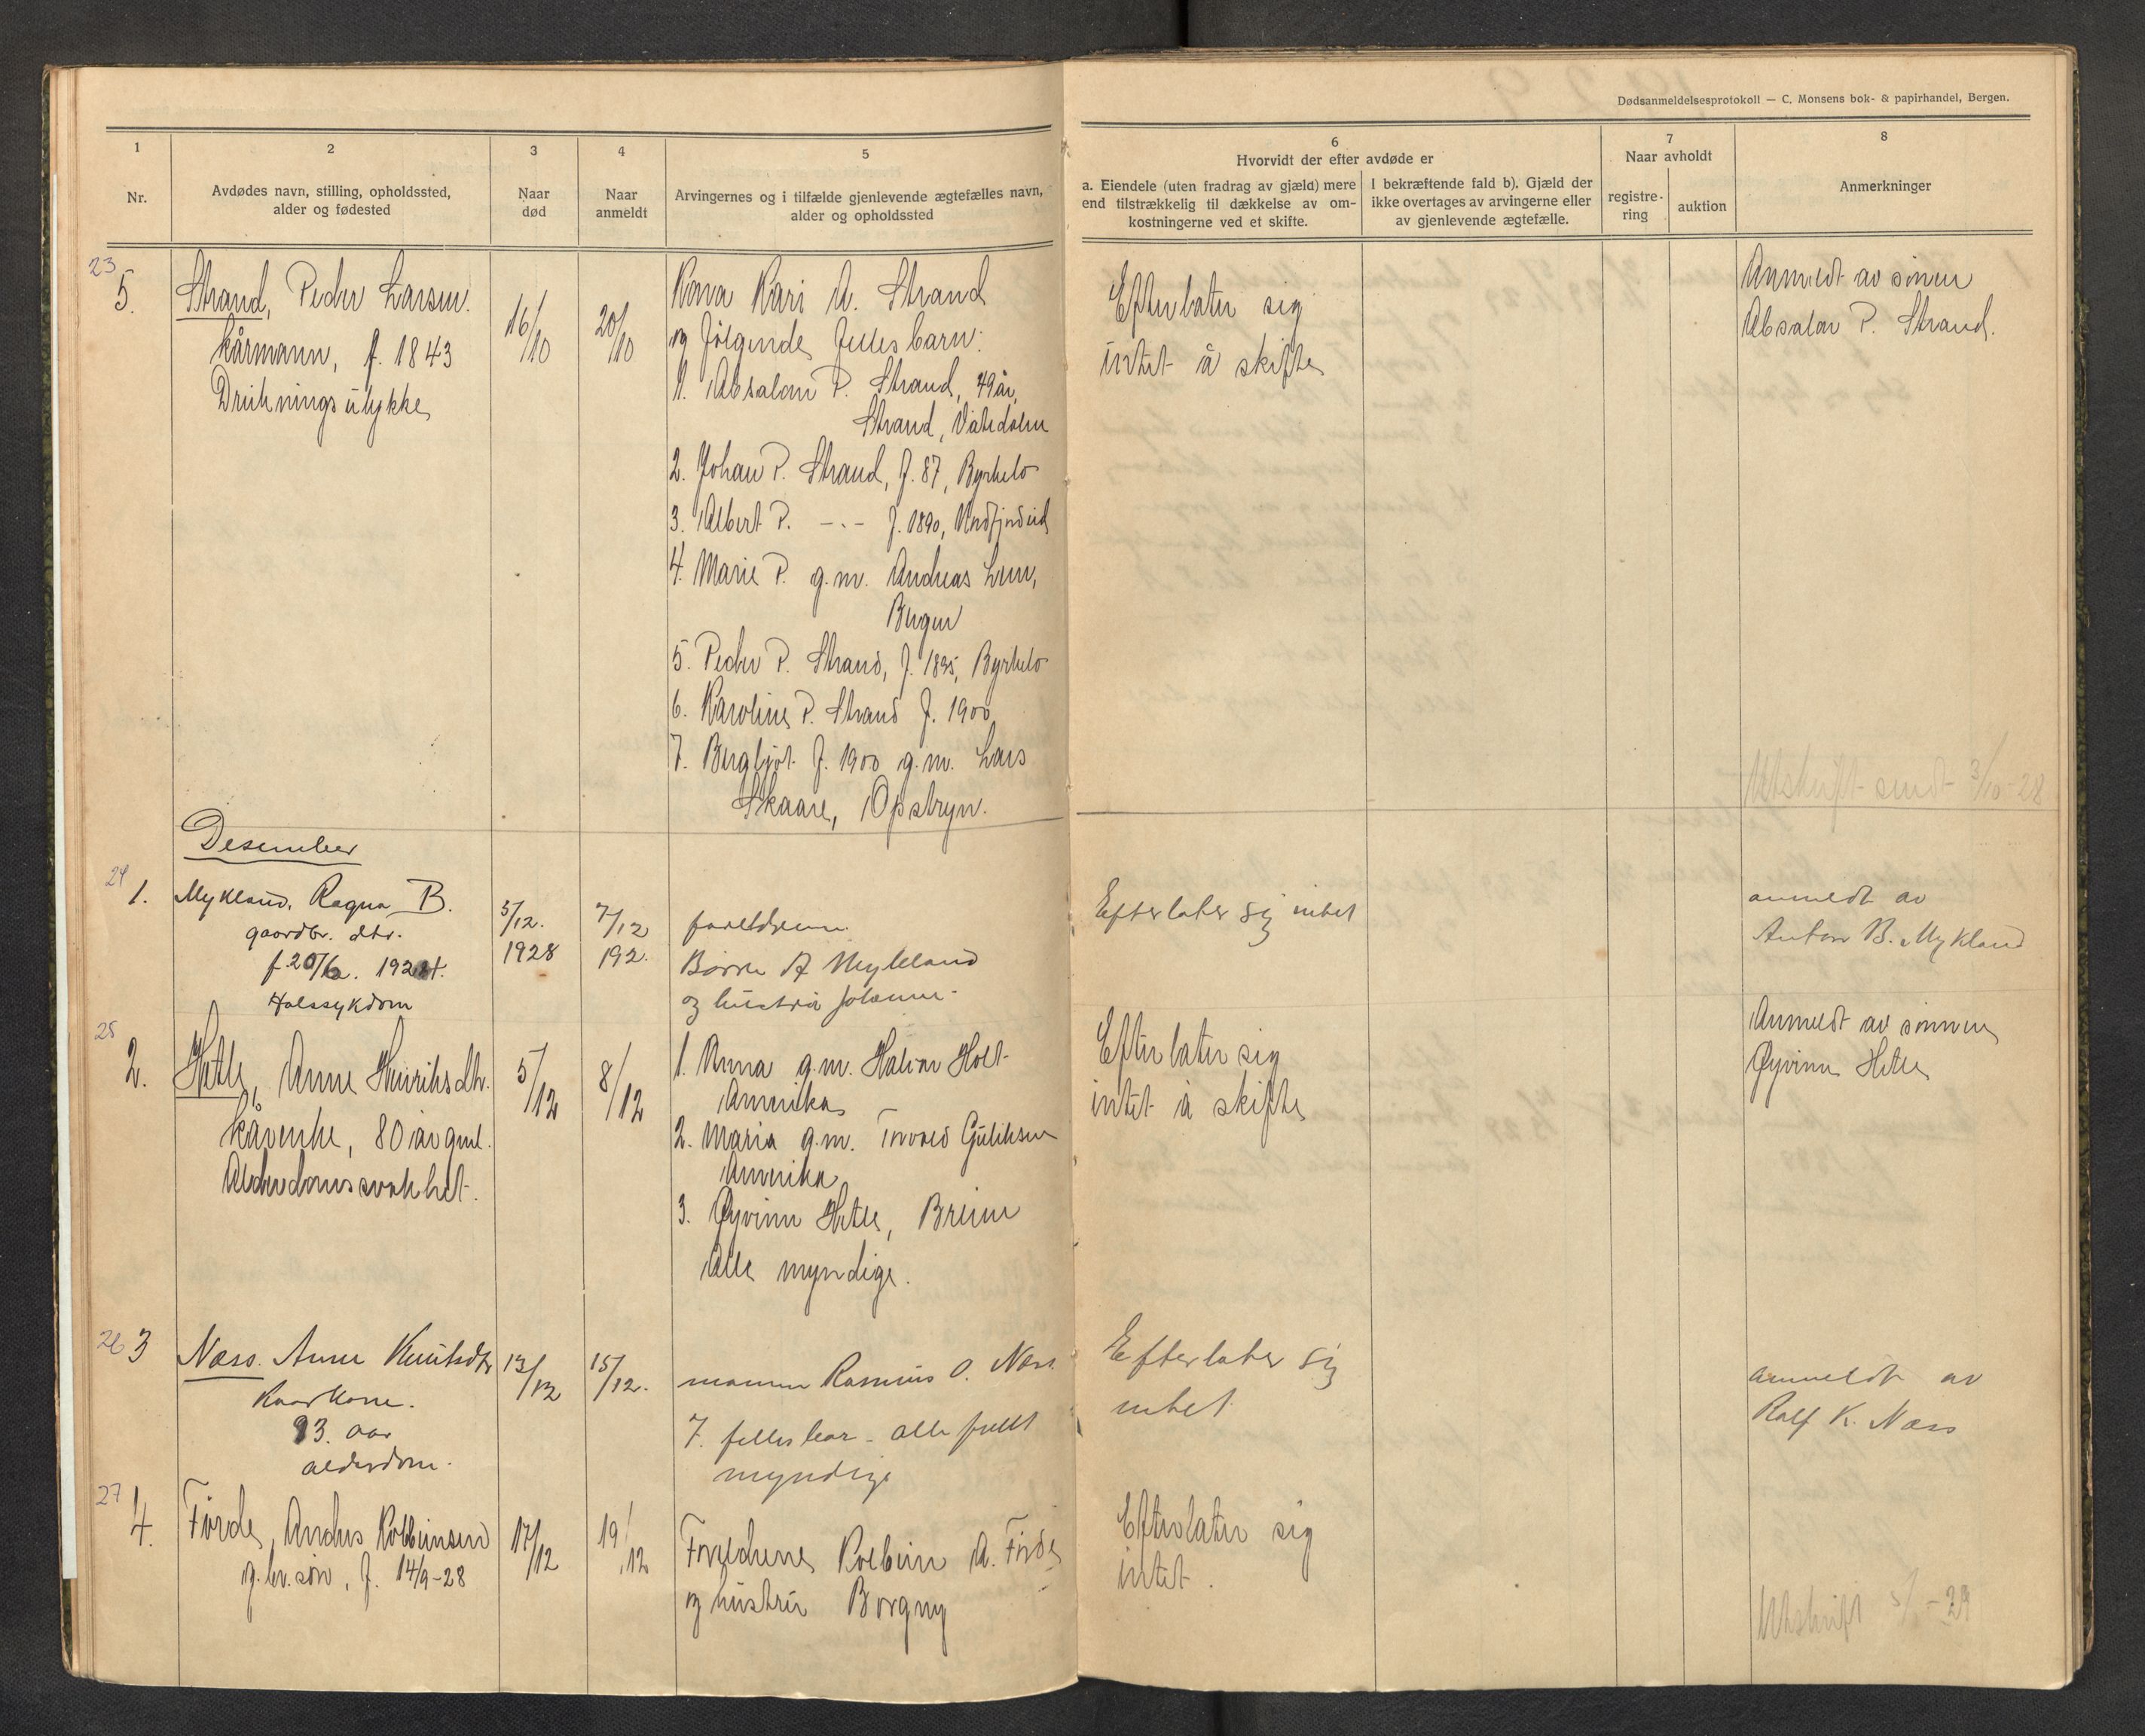 Dødsanmeldelsesprotokoll — C. Monsens bok- & papirhandel, Bergen.
1
Nr.
2
Avdødes navn, stilling, opholdssted,
alder og fødested
3
Naar
død
4
Naar
anmeldt
5
Arvingernes og i tilfælde gjenlevende ægtefælles navn,
alder og opholdssted
6
Hvorvidt der efter avdøde er
a. Eiendele (uten fradrag av gjæld) mere
end tilstrækkelig til dækkelse av om-
kostningerne ved et skifte.
I bekræftende fald b). Gjæld der
ikke overtages av arvingerne eller
av gjenlevende ægtefælle.
7
Naar avholdt
registre-
ring
auktion
8
Anmerkninger
23
5.
Strand, Peder Larsen.
kårmann, f. 1843
Drukningsulykke
16/10
20/10
Kona Kari A. Strand
og følgende fellesbarn:
1. Absalon P. Strand, 49 år,
Strand, Våtedalen
2. Johan P. Strand, f. 87, Byrkelo
3. Albert P. -·- f. 1890, Nordfjordeid
4. Marie P. g.m. Andreas
Bergen
5. Peder P. Strand, f. 1895, Byrkelo
6. Karoline P. Strand f. 1900
7. Bergljot f. 1900 g.m. Lars
Skaare, Opstryn.
Efterlater sig
intet å skifte
Anmeldt av sönen
Absalon P. Strand.
Utskrift sendt 3/10-28
Desember
24
1.
Mykland, Ragna B.
gaardbr. dtr.
Halssykdom
5/12.
1928
7/12
192.
foreldrene.
Börre A Mykland
og hustru Johanne.
Efterlater sig intet
anmeldt av
Anton B. Mykland
25
2.
Hetle, Anne Henriksdtr.
kårenke, 80 år gml.
Alderdomssvakhet.
5/12
8/12
1. Anna g.m. Halvor Holt
Amerika
2. Maria g.m. Guliksen
Amerika
3. Øyvinn Hetle, Breim
Alle myndige.
Efterlater sig
intet å skifte
Anmeldt av sönnen
Øyvinn Hetle
26
3
Næss. Anne Knutsdtr
Kaarkone.
93. aar
alderdom.
13/12
15/12.
mannen Rasmus O. Næss
7. fellesbar - alle fullt
myndige
Efterlater sig
intet
anmeldt av
Rolf K. Næss
27
4.
Förde, Anders Kolbeinsen
g.br.søn, f. 14/9-28
17/12
19/12
Foreldrene Kolbein A. Förde
og hustru Borgny
Efterlater sig
intet.
Utskrift -29